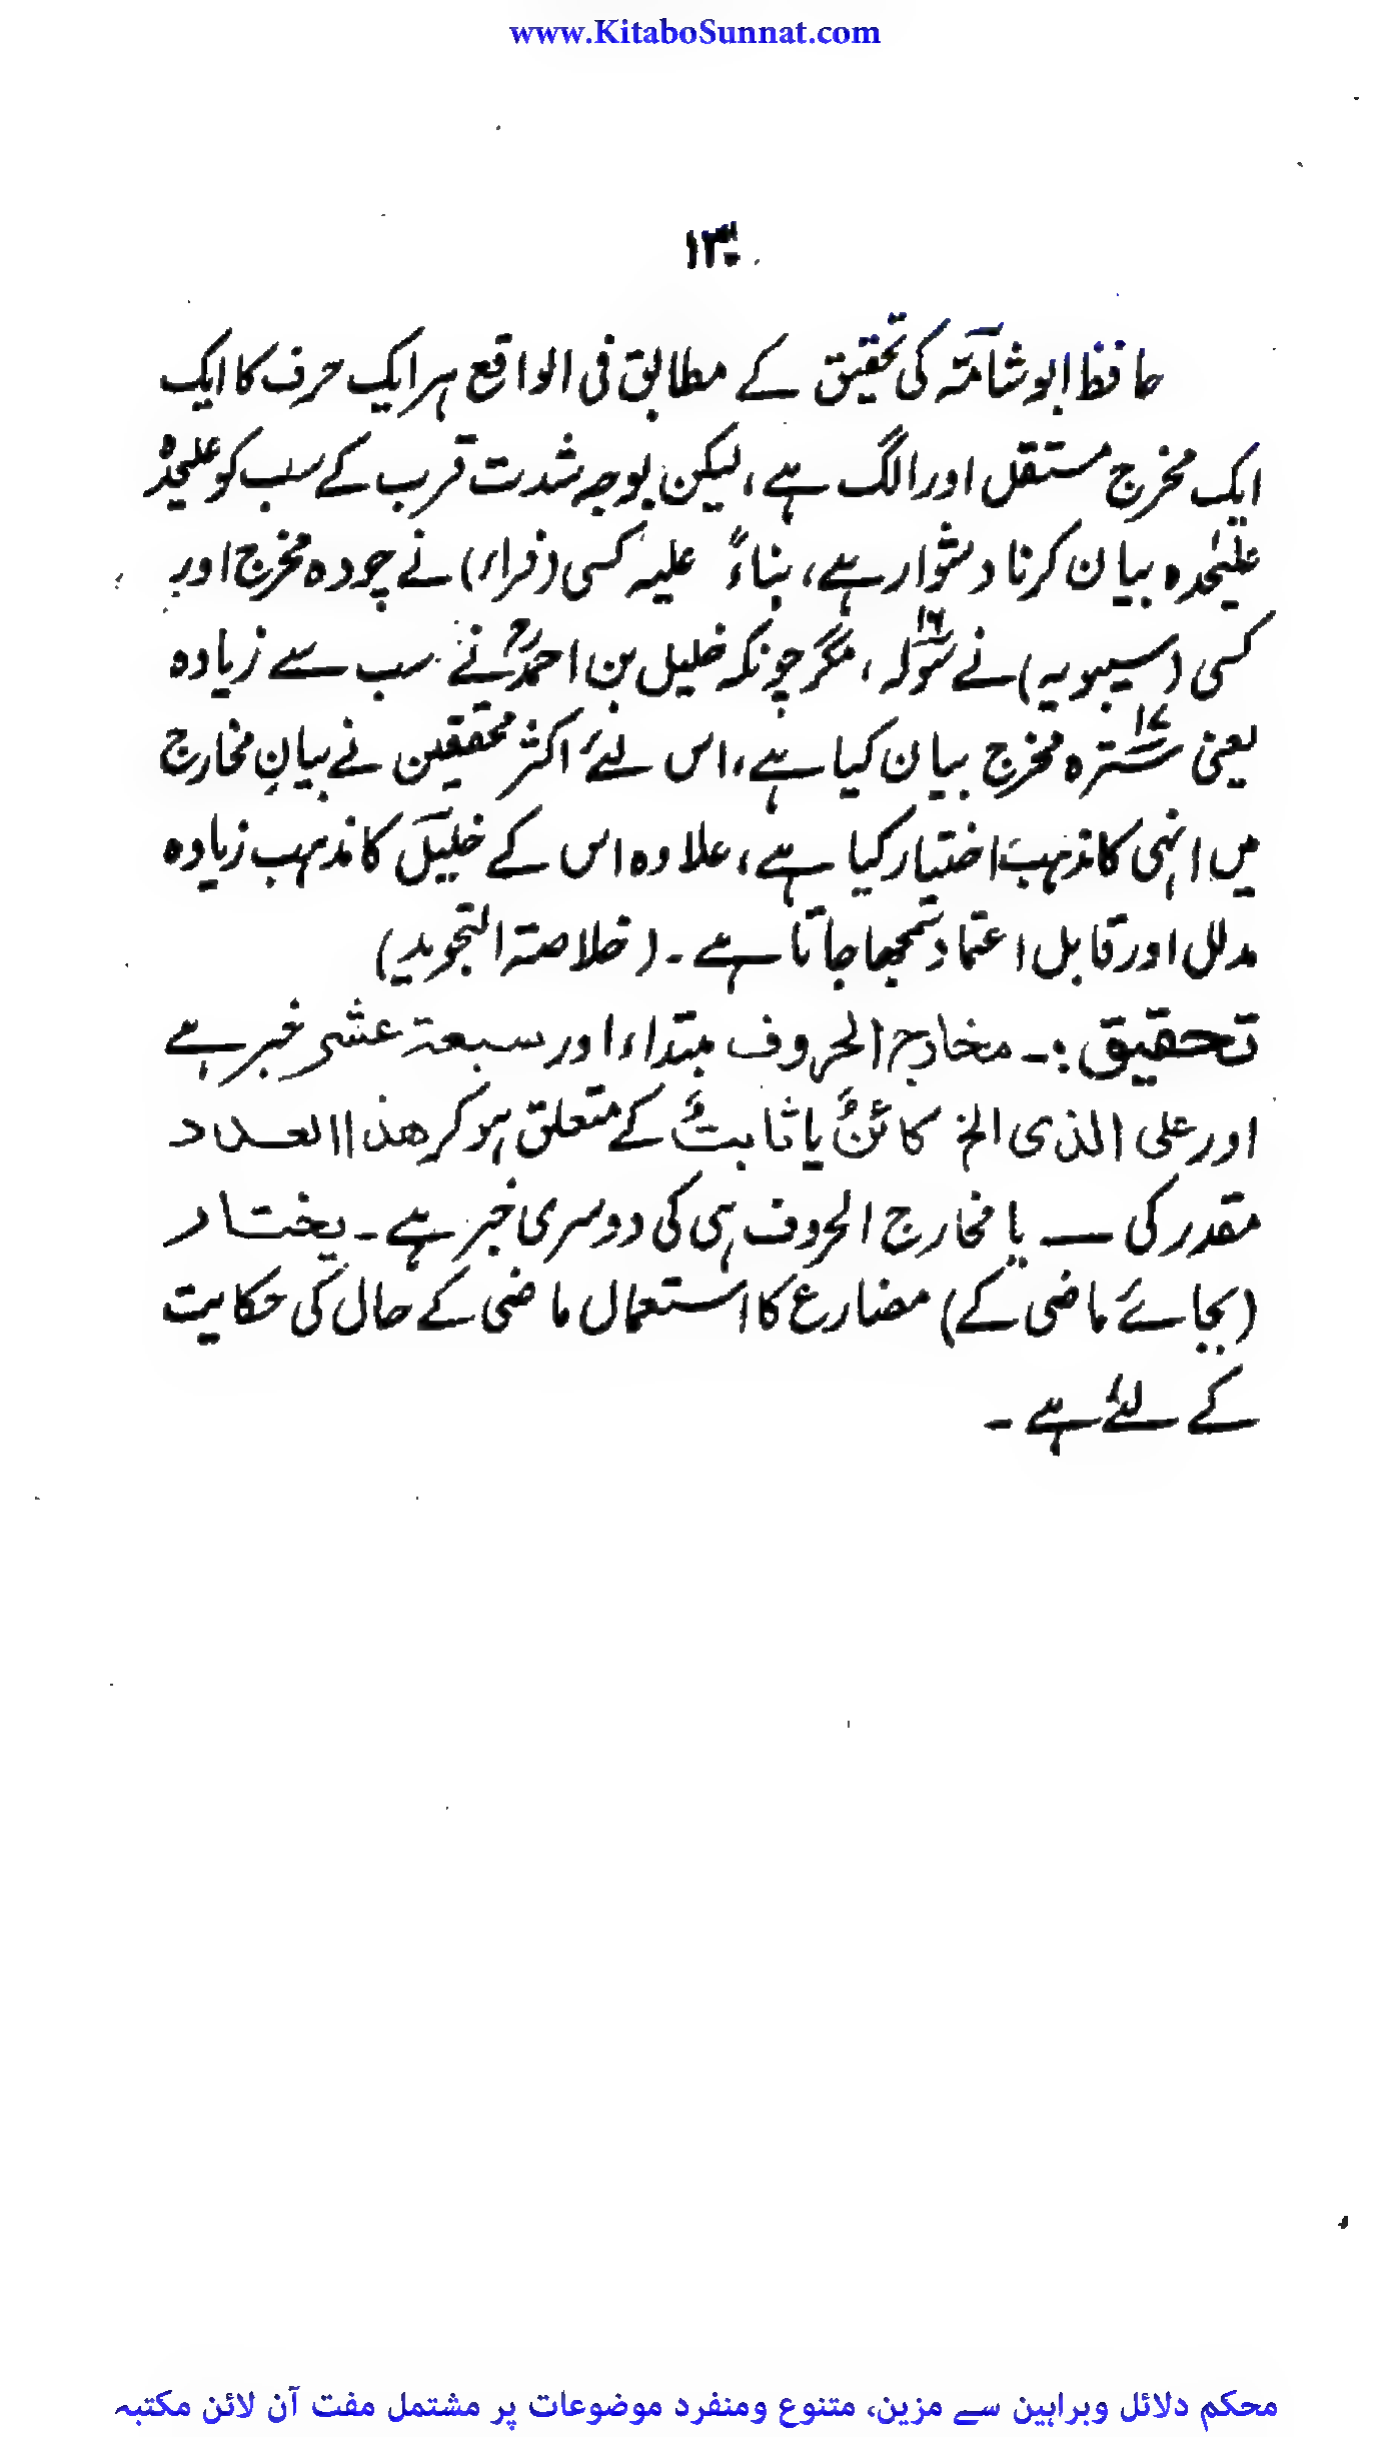 www.KitaboSunnat.com
۱۳۰
حافظ ابو شامہؒ کی تحقیق کے مطابق فی الواقع ہر ایک حرف کا ایک
ایک مخرج مستقل اور الگ ہے، لیکن بوجہ شدت قرب کے سب کو علیحدہ
علیٰحدہ بیان کرنا دشوار ہے، بناءً علیہ کسی (فراء) نے چودہ مخرج اور
کسی (سیبویہ) نے سولہ ۱۶، مگر چونکہ خلیل بن احمدؒ نے سب سے زیادہ
یعنی سترہ ۱۷ مخرج بیان کیا ہے، اس لئے اکثر محققین نے بیانِ مخارج
میں انہی کا مذہب اختیار کیا ہے، علاوہ اس کے خلیل کا مذہب زیادہ
مدلل اور قابل اعتماد سمجھا جاتا ہے۔ (خلاصۃ التجوید)
تحقیق :۔ مخارج الحروف مبتداء اور سبعۃ عشر خبر ہے
اور علی الذی الخ کائنٌ یا ثابتٌ کے متعلق ہو کر ھذا العداد
مقدر کی — یا مخارج الحروف ہی کی دوسری خبر ہے۔ یختار
(بجائے ماضی کے) مضارع کا استعمال ماضی کے حال کی حکایت
کے لئے ہے۔
محکم دلائل وبراہین سے مزین، متنوع ومنفرد موضوعات پر مشتمل مفت آن لائن مکتبہ